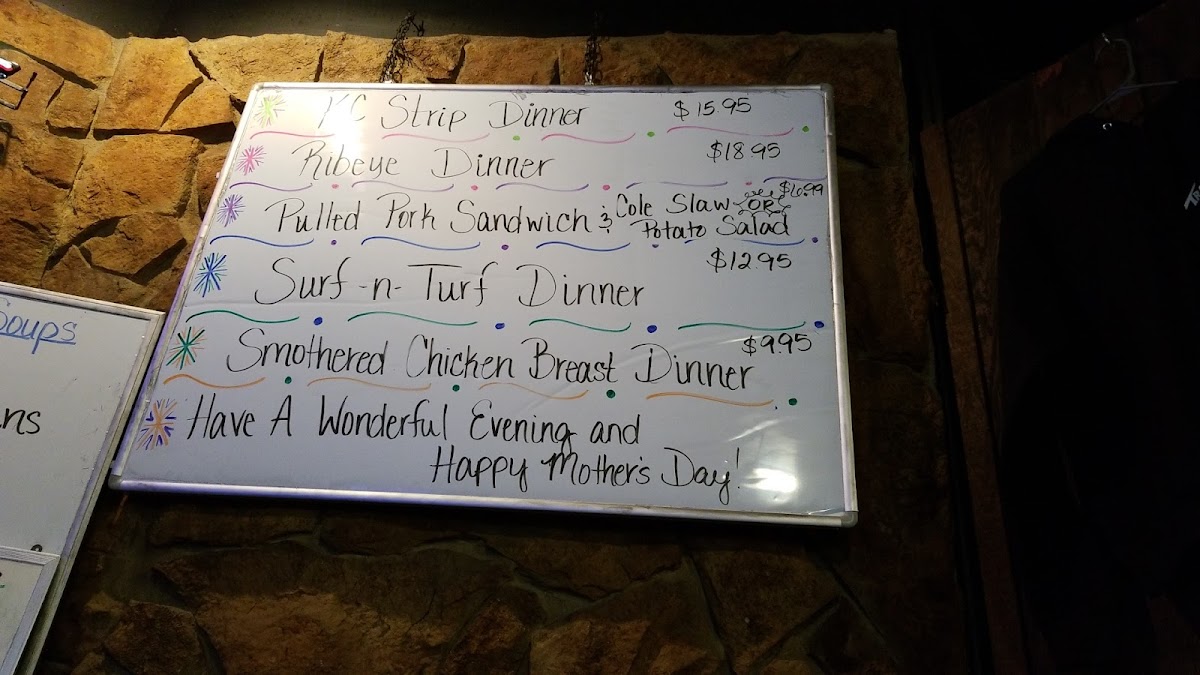 KC Strip Dinner $15.95
Ribeye Dinner $18.95
Pulled Pork Sandwich & Cole Slaw OR $6.99
Potato Salad
Surf-n-Turf Dinner $12.95
Smothered Chicken Breast Dinner $9.95
Have A Wonderful Evening and
Happy Mother's Day!
Soups